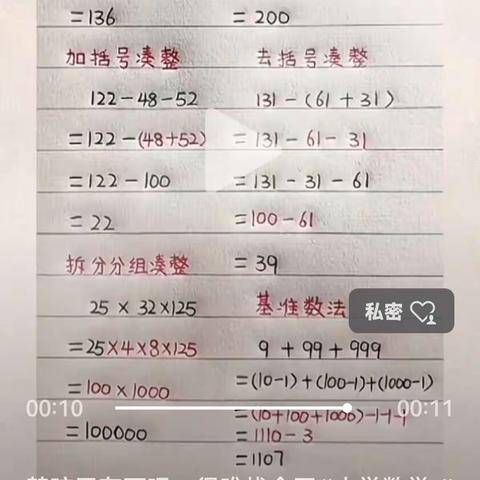 =136
加括号凑整
122-48-52
=122-(48+52)
=122-100
=22
拆分分组凑整
25×32×125
=25×4×8×125
=100×1000
=100000
=200
去括号凑整
131-(61+31)
=131-61-31
=131-31-61
=100-61
=39
基准数法
9+99+999
=(10-1)+(100-1)+(1000-1)
=(10+100+1000)-1-1-1
=1110-3
=1107
私密
00:10
00:11